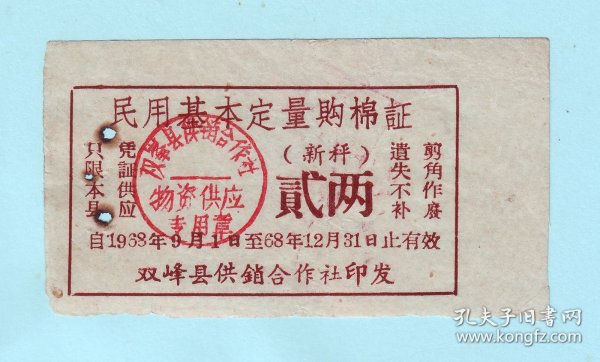 民用基本定量购棉証
只限本县
凭証供应
双峯县供銷合作社
物资供应
专用章
(新秤)
貳两
遺失不补
剪角作廢
自1968年9月1日至68年12月31日止有效
双峰县供銷合作社印发
孔夫子旧書网
www.kongfz.com